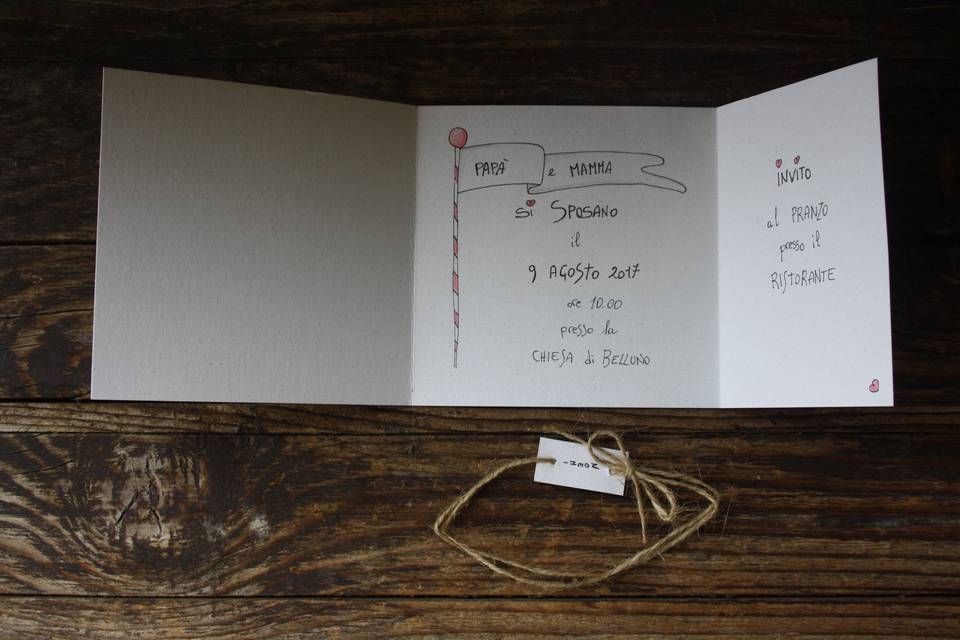 PAPÀ e MAMMA
Si SPOSANO
il
9 AGOSTO 2017
ore 10.00
presso la
CHIESA di BELLUNO
iNViTO
al PRANZO
presso il
RISTORANTE
NOEMI